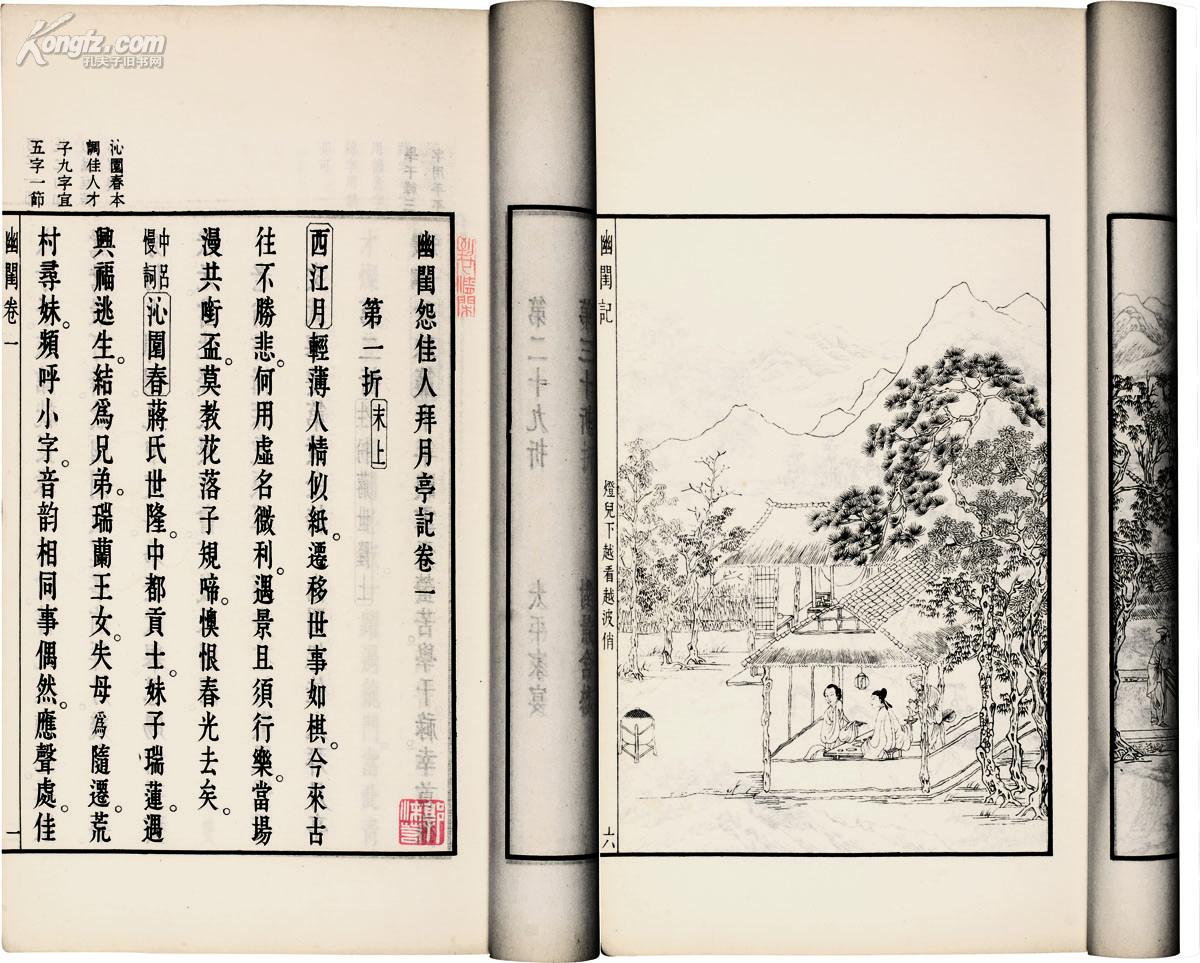 Kongfz.com
孔夫子旧书网
幽閨記
燈兒下越看越波俏
六
第二十九折
太平家宴
沁園春本
調佳人才
子九字宜
五字一節
幽閨怨佳人拜月亭記卷一
第一折 末上
西江月 輕薄人情似紙。遷移世事如棋。今來古
往不勝悲。何用虛名微利。遇景且須行樂。當場
漫共啣盃。莫教花落子規啼。懊恨春光去矣。
中呂慢詞 沁園春 蔣氏世隆。中都貢士。妹子瑞蓮。遇
興福逃生。結爲兄弟。瑞蘭王女。失母爲隨遷。荒
村尋妹。頻呼小字。音韵相同事偶然。應聲處。佳
幽閨卷一
一